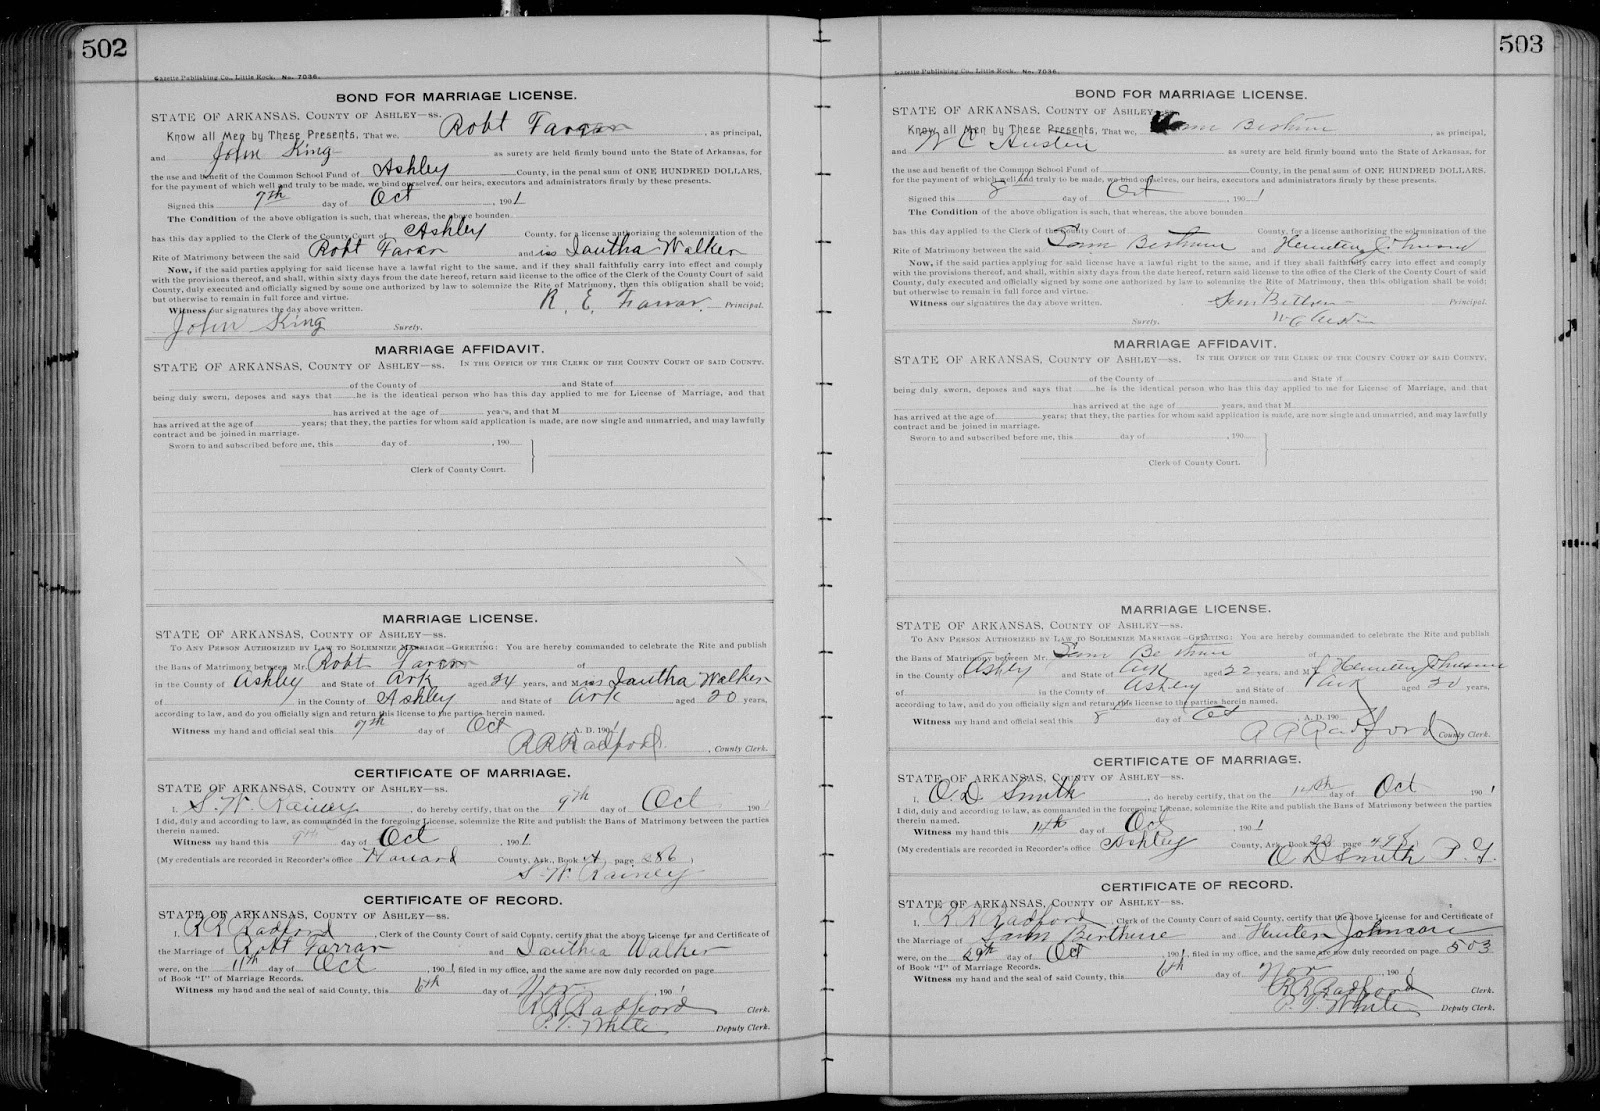 502
Gazette Publishing Co., Little Rock. No. 7036.
BOND FOR MARRIAGE LICENSE.
STATE OF ARKANSAS, COUNTY OF ASHLEY—ss.
Know all Men by These Presents, That we, Robt Farrar, as principal,
and John King as surety are held firmly bound unto the State of Arkansas, for
the use and benefit of the Common School Fund of Ashley County, in the penal sum of ONE HUNDRED DOLLARS,
for the payment of which well and truly to be made, we bind ourselves, our heirs, executors and administrators firmly by these presents.
Signed this 7th day of Oct, 1901
The Condition of the above obligation is such, that whereas, the above bounden
has this day applied to the Clerk of the County Court of Ashley County, for a license authorizing the solemnization of the
Rite of Matrimony between the said Robt Farrar and iss Iantha Walker
Now, if the said parties applying for said license have a lawful right to the same, and if they shall faithfully carry into effect and comply
with the provisions thereof, and shall, within sixty days from the date hereof, return said license to the office of the Clerk of the County Court of said
County, duly executed and officially signed by some one authorized by law to solemnize the Rite of Matrimony, then this obligation shall be void;
but otherwise to remain in full force and virtue.
Witness our signatures the day above written. R. E. Farrar. Principal.
John King Surety.
MARRIAGE AFFIDAVIT.
STATE OF ARKANSAS, COUNTY OF ASHLEY—ss. IN THE OFFICE OF THE CLERK OF THE COUNTY COURT OF SAID COUNTY.
of the County of and State of
being duly sworn, deposes and says that he is the identical person who has this day applied to me for License of Marriage, and that
has arrived at the age of years, and that M
has arrived at the age of years; that they, the parties for whom said application is made, are now single and unmarried, and may lawfully
contract and be joined in marriage.
Sworn to and subscribed before me, this day of , 190
Clerk of County Court.
MARRIAGE LICENSE.
STATE OF ARKANSAS, COUNTY OF ASHLEY—ss.
TO ANY PERSON AUTHORIZED BY LAW TO SOLEMNIZE MARRIAGE—GREETING: You are hereby commanded to celebrate the Rite and publish
the Bans of Matrimony between Mr. Robt Farrar of
in the County of Ashley and State of Ark aged 24 years, and Miss Iantha Walker
of in the County of Ashley and State of Ark aged 20 years,
according to law, and do you officially sign and return this license to the parties herein named.
Witness my hand and official seal this 7th day of Oct A. D. 1901
R R Radford, County Clerk.
CERTIFICATE OF MARRIAGE.
STATE OF ARKANSAS, COUNTY OF ASHLEY—ss.
I, S. W. Rainey, do hereby certify, that on the 9th day of Oct 190
I did, duly and according to law, as commanded in the foregoing License, solemnize the Rite and publish the Bans of Matrimony between the parties
therein named.
Witness my hand this 9th day of Oct, 1901
(My credentials are recorded in Recorder's office County, Ark., Book A page 286)
S. W. Rainey
CERTIFICATE OF RECORD.
STATE OF ARKANSAS, COUNTY OF ASHLEY—ss.
I, R R Radford, Clerk of the County Court of said County, certify that the above License for and Certificate of
the Marriage of Robt Farrar and Iantha Walker
were, on the 11th day of Oct, 1901, filed in my office, and the same are now duly recorded on page
of Book "I" of Marriage Records.
Witness my hand and the seal of said County, this 6th day of Nov, 1901
R R Radford Clerk.
P. T. White Deputy Clerk.
503
Gazette Publishing Co., Little Rock. No. 7036.
BOND FOR MARRIAGE LICENSE.
STATE OF ARKANSAS, COUNTY OF ASHLEY—ss.
Know all Men by These Presents, That we, Sam, as principal,
and W C Austin as surety are held firmly bound unto the State of Arkansas, for
the use and benefit of the Common School Fund of County, in the penal sum of ONE HUNDRED DOLLARS,
for the payment of which well and truly to be made, we bind ourselves, our heirs, executors and administrators firmly by these presents.
Signed this 8th day of Oct, 1901
The Condition of the above obligation is such, that whereas, the above bounden
has this day applied to the Clerk of the County Court of County, for a license authorizing the solemnization of the
Rite of Matrimony between the said Sam and Johnson
Now, if the said parties applying for said license have a lawful right to the same, and if they shall faithfully carry into effect and comply
with the provisions thereof, and shall, within sixty days from the date hereof, return said license to the office of the Clerk of the County Court of said
County, duly executed and officially signed by some one authorized by law to solemnize the Rite of Matrimony, then this obligation shall be void;
but otherwise to remain in full force and virtue.
Witness our signatures the day above written. Sam Principal.
Surety. W C Austin
MARRIAGE AFFIDAVIT.
STATE OF ARKANSAS, COUNTY OF ASHLEY—ss. IN THE OFFICE OF THE CLERK OF THE COUNTY COURT OF SAID COUNTY.
of the County of and State of
being duly sworn, deposes and says that he is the identical person who has this day applied to me for License of Marriage, and that
has arrived at the age of years, and that M
has arrived at the age of years; that they, the parties for whom said application is made, are now single and unmarried, and may lawfully
contract and be joined in marriage.
Sworn to and subscribed before me, this day of , 190
Clerk of County Court.
MARRIAGE LICENSE.
STATE OF ARKANSAS, COUNTY OF ASHLEY—ss.
TO ANY PERSON AUTHORIZED BY LAW TO SOLEMNIZE MARRIAGE—GREETING: You are hereby commanded to celebrate the Rite and publish
the Bans of Matrimony between Mr. Sam of
in the County of Ashley and State of Ark aged 22 years, and M Johnson
of in the County of Ashley and State of Ark aged 20 years,
according to law, and do you officially sign and return this license to the parties herein named.
Witness my hand and official seal this 8 day of Oct, A. D. 190
R R Radford County Clerk.
CERTIFICATE OF MARRIAGE.
STATE OF ARKANSAS, COUNTY OF ASHLEY—ss.
I, O. D. Smith, do hereby certify, that on the 14th day of Oct 1901
I did, duly and according to law, as commanded in the foregoing License, solemnize the Rite and publish the Bans of Matrimony between the parties
therein named.
Witness my hand this 14th day of Oct, 1901
(My credentials are recorded in Recorder's office Ashley County, Ark., Book page 498)
O D Smith
CERTIFICATE OF RECORD.
STATE OF ARKANSAS, COUNTY OF ASHLEY—ss.
I, R R Radford, Clerk of the County Court of said County, certify that the above License for and Certificate of
the Marriage of Sam and Johnson
were, on the 29th day of Oct, 1901, filed in my office, and the same are now duly recorded on page 503
of Book "I" of Marriage Records.
Witness my hand and the seal of said County, this 6th day of Nov, 1901
R R Radford Clerk.
P. T. White Deputy Clerk.